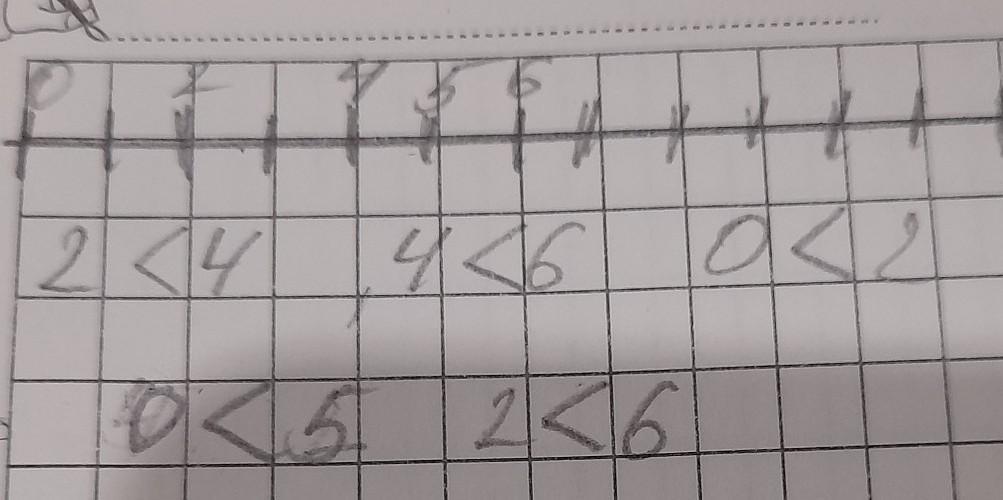 0 2 4 5 6
2 < 4 4 < 6 0 < 2
0 < 5 2 < 6